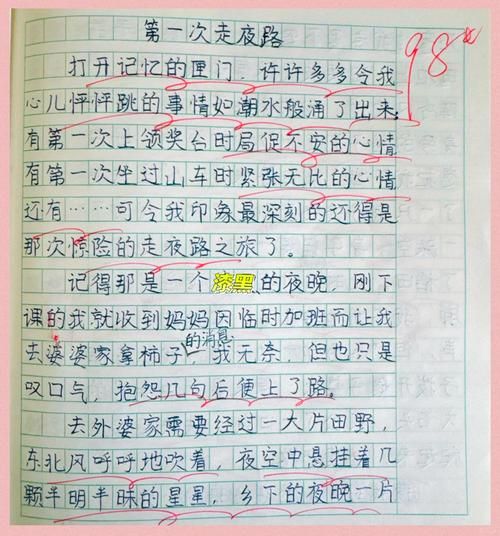 第一次走夜路
98
打开记忆的匣门,许许多多令我
心儿怦怦跳的事情如潮水般涌了出来:
有第一次上领奖台时局促不安的心情
有第一次坐过山车时紧张无比的心情
还有……可令我印象最深刻的还得是
那次惊险的走夜路之旅了。
记得那是一个漆黑的夜晚,刚下
课的我就收到妈妈因临时加班而让我
去婆婆家拿柿子的消息,我无奈,但也只是
叹口气,抱怨几句后便上了路。
去外婆家需要经过一大片田野,
东北风呼呼地吹着,夜空中悬挂着几
颗半明半昧的星星,乡下的夜晚一片